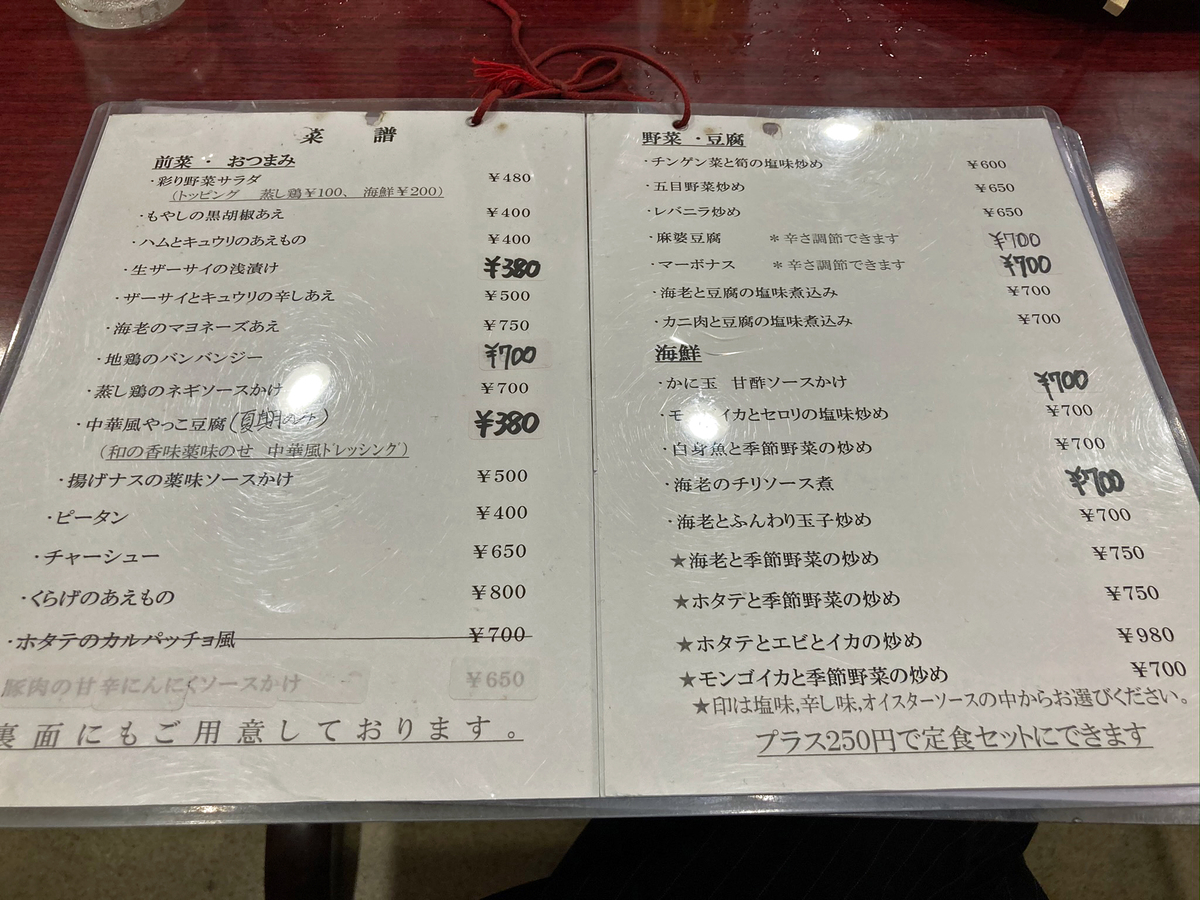 菜 譜
前菜 ・ おつまみ
・彩り野菜サラダ ¥480
(トッピング 蒸し鶏¥100、 海鮮¥200)
・もやしの黒胡椒あえ ¥400
・ハムとキュウリのあえもの ¥400
・生ザーサイの浅漬け ¥380
・ザーサイとキュウリの辛しあえ ¥500
・海老のマヨネーズあえ ¥750
・地鶏のバンバンジー ¥700
・蒸し鶏のネギソースかけ ¥700
・中華風やっこ豆腐(夏期のみ) ¥380
(和の香味薬味のせ 中華風ドレッシング)
・揚げナスの薬味ソースかけ ¥500
・ピータン ¥400
・チャーシュー ¥650
・くらげのあえもの ¥800
・ホタテのカルパッチョ風 ¥700
豚肉の甘辛にんにくソースかけ ¥650
裏面にもご用意しております。
野菜 ・豆腐
・チンゲン菜と筍の塩味炒め ¥600
・五目野菜炒め ¥650
・レバニラ炒め ¥650
・麻婆豆腐 *辛さ調節できます ¥700
・マーボナス *辛さ調節できます ¥700
・海老と豆腐の塩味煮込み ¥700
・カニ肉と豆腐の塩味煮込み ¥700
海鮮
・かに玉 甘酢ソースかけ ¥700
・モ イカとセロリの塩味炒め ¥700
・白身魚と季節野菜の炒め ¥700
・海老のチリソース煮 ¥700
・海老とふんわり玉子炒め ¥700
★海老と季節野菜の炒め ¥750
★ホタテと季節野菜の炒め ¥750
★ホタテとエビとイカの炒め ¥980
★モンゴイカと季節野菜の炒め ¥700
★印は塩味,辛し味,オイスターソースの中からお選びください。
プラス250円で定食セットにできます